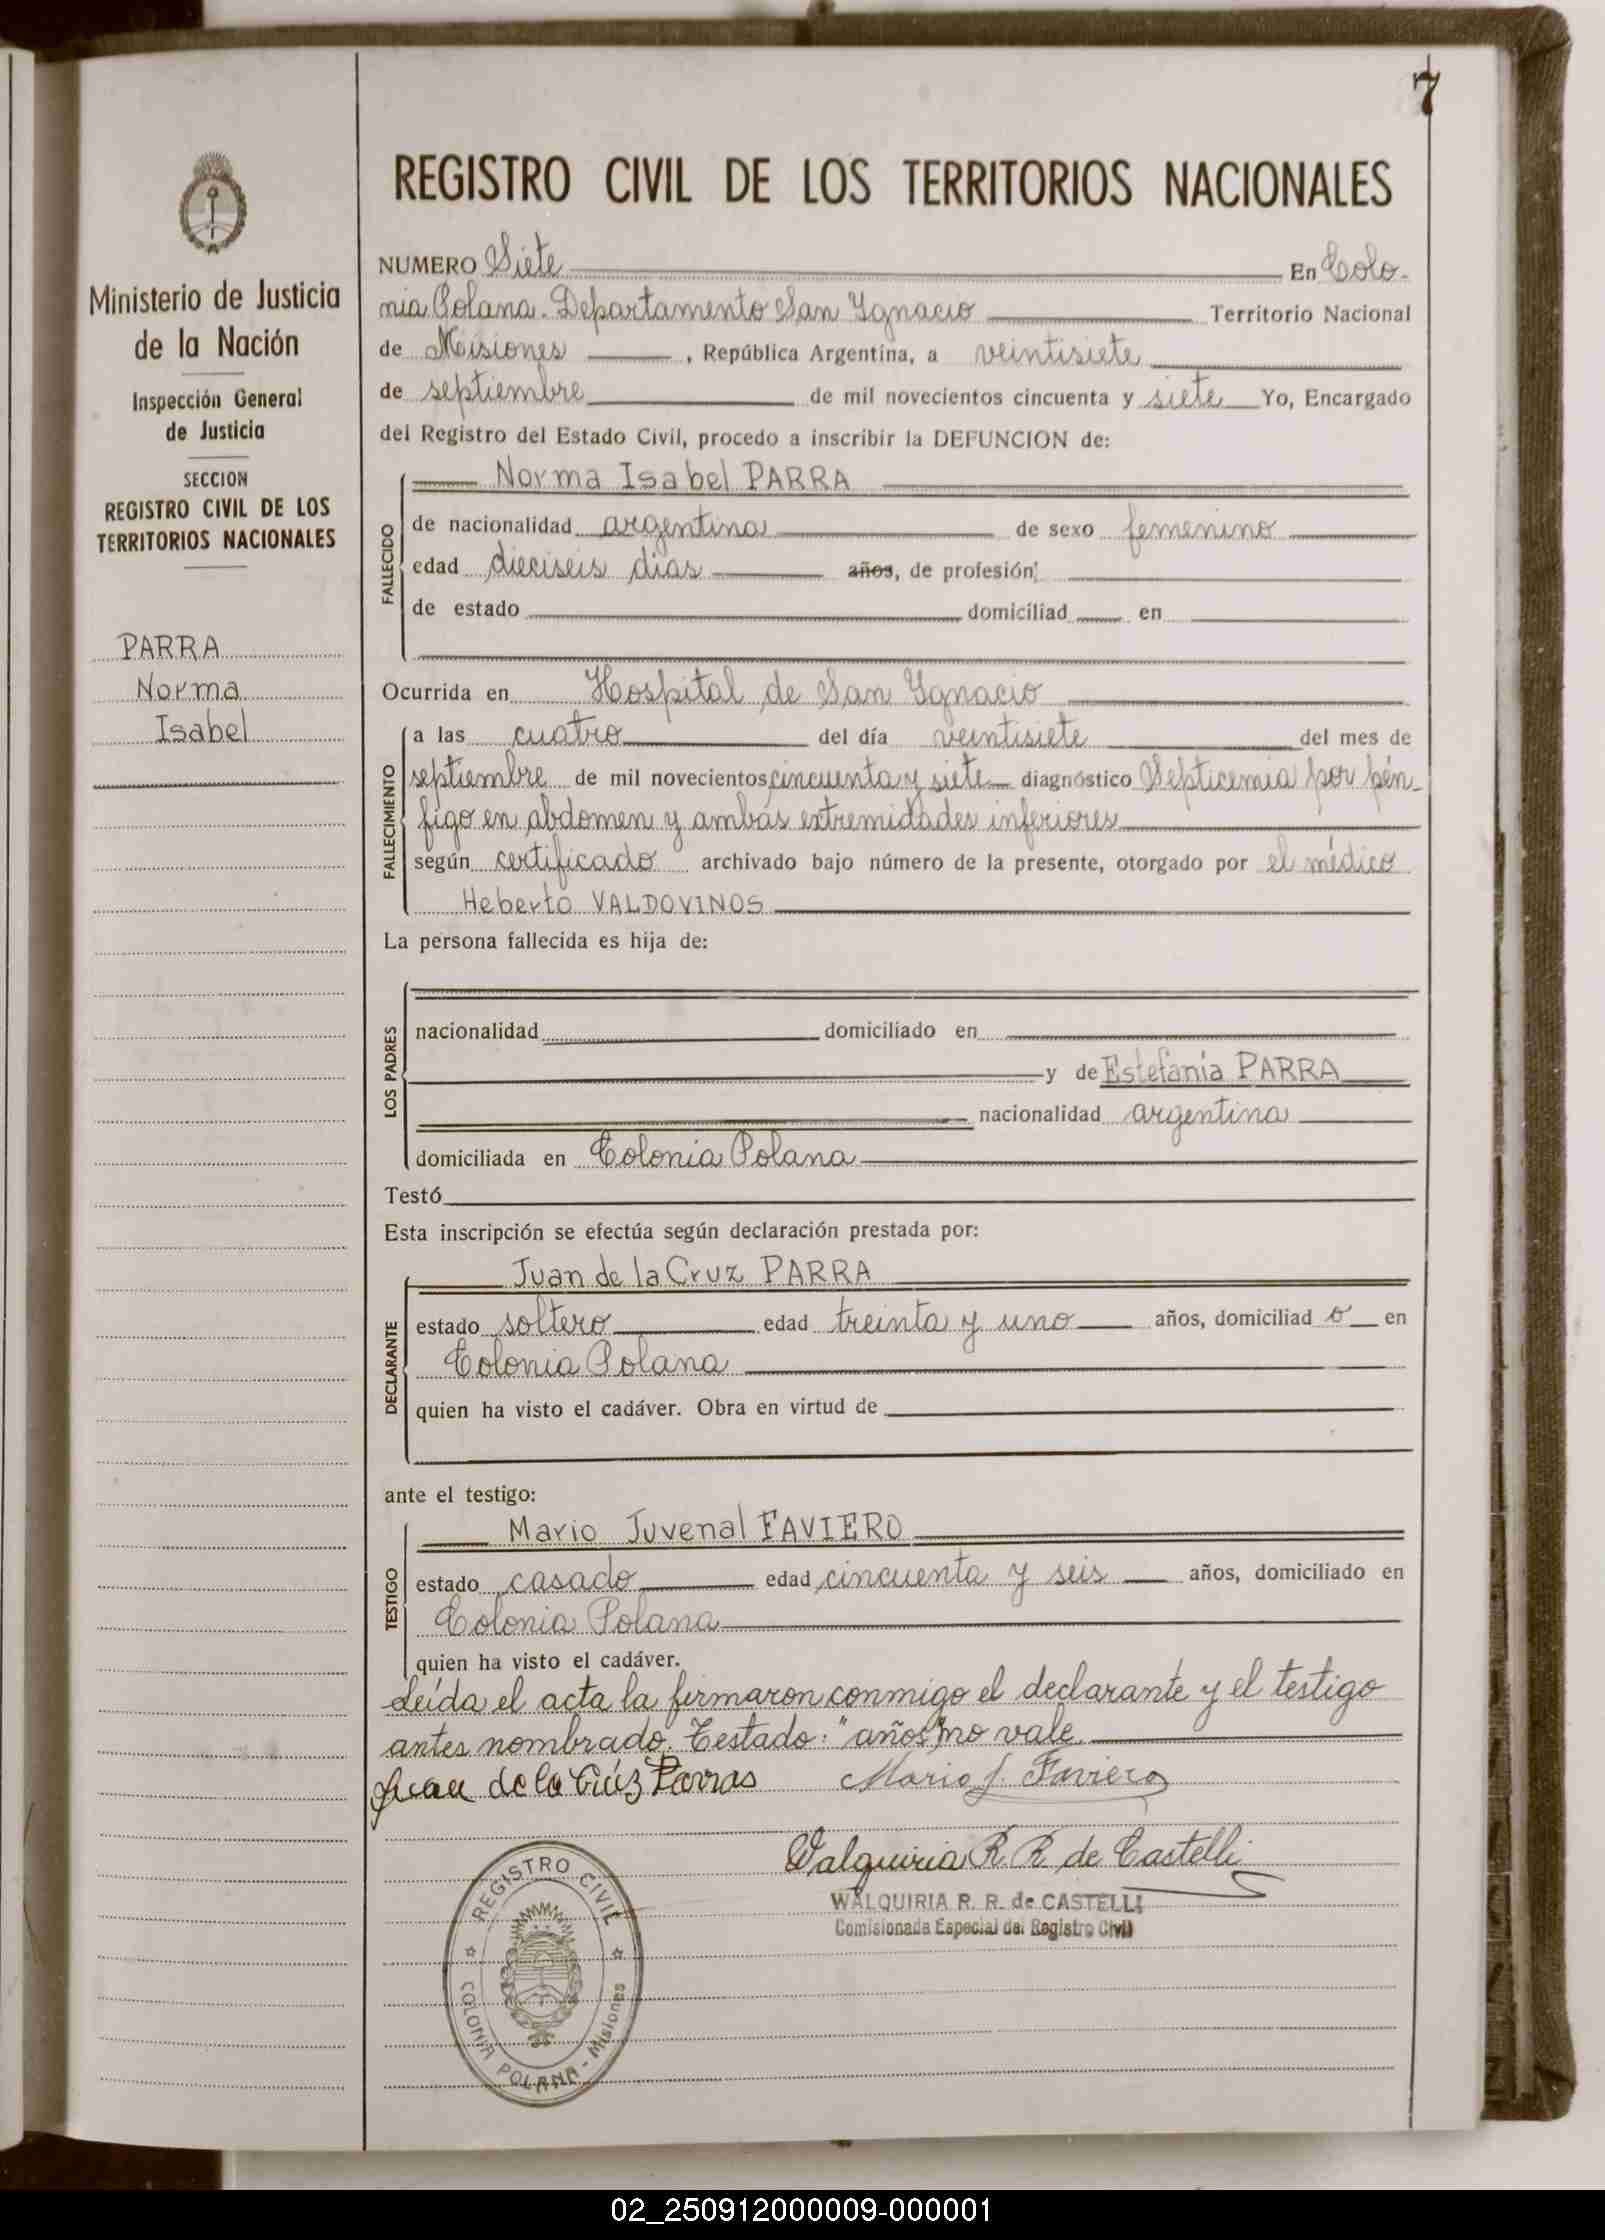 7
REGISTRO CIVIL DE LOS TERRITORIOS NACIONALES
Ministerio de Justicia
de la Nación
Inspección General
de Justicia
SECCION
REGISTRO CIVIL DE LOS
TERRITORIOS NACIONALES
PARRA
Norma
Isabel
NUMERO Siete En Colo-
nia Polana. Departamento San Ygnacio Territorio Nacional
de Misiones, República Argentina, a veintisiete
de septiembre de mil novecientos cincuenta y siete Yo, Encargado
del Registro del Estado Civil, procedo a inscribir la DEFUNCION de:
FALLECIDO
Norma Isabel PARRA
de nacionalidad argentina de sexo femenino
edad dieciseis dias años, de profesión
de estado domiciliad en
Ocurrida en Hospital de San Ygnacio
FALLECIMIENTO
a las cuatro del día veintisiete del mes de
septiembre de mil novecientos cincuenta y siete diagnóstico Septicemia por pén-
figo en abdomen y ambas extremidades inferiores
según certificado archivado bajo número de la presente, otorgado por el médico
Heberto VALDOVINOS
La persona fallecida es hija de:
LOS PADRES
nacionalidad domiciliado en
y de Estefanía PARRA
nacionalidad argentina
domiciliada en Colonia Polana
Testó
Esta inscripción se efectúa según declaración prestada por:
DECLARANTE
Juan de la Cruz PARRA
estado soltero edad treinta y uno años, domiciliad o en
Colonia Polana
quien ha visto el cadáver. Obra en virtud de
ante el testigo:
TESTIGO
Mario Juvenal FAVIERO
estado casado edad cincuenta y seis años, domiciliado en
Colonia Polana
quien ha visto el cadáver.
Leída el acta la firmaron conmigo el declarante y el testigo
antes nombrado. Testado: "años" no vale.
Juan de la Cruz Parras Mario J. Faviero
Walquiria R. R. de Castelli
WALQUIRIA R. R. de CASTELLI
Comisionada Especial del Registro Civil
REGISTRO CIVIL
COLONIA POLANA - Misiones
02_250912000009-000001